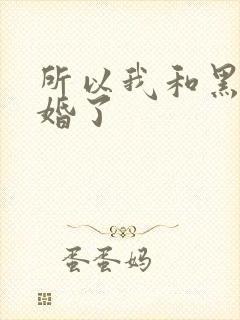 所以我和黑
婚了
蛋蛋妈